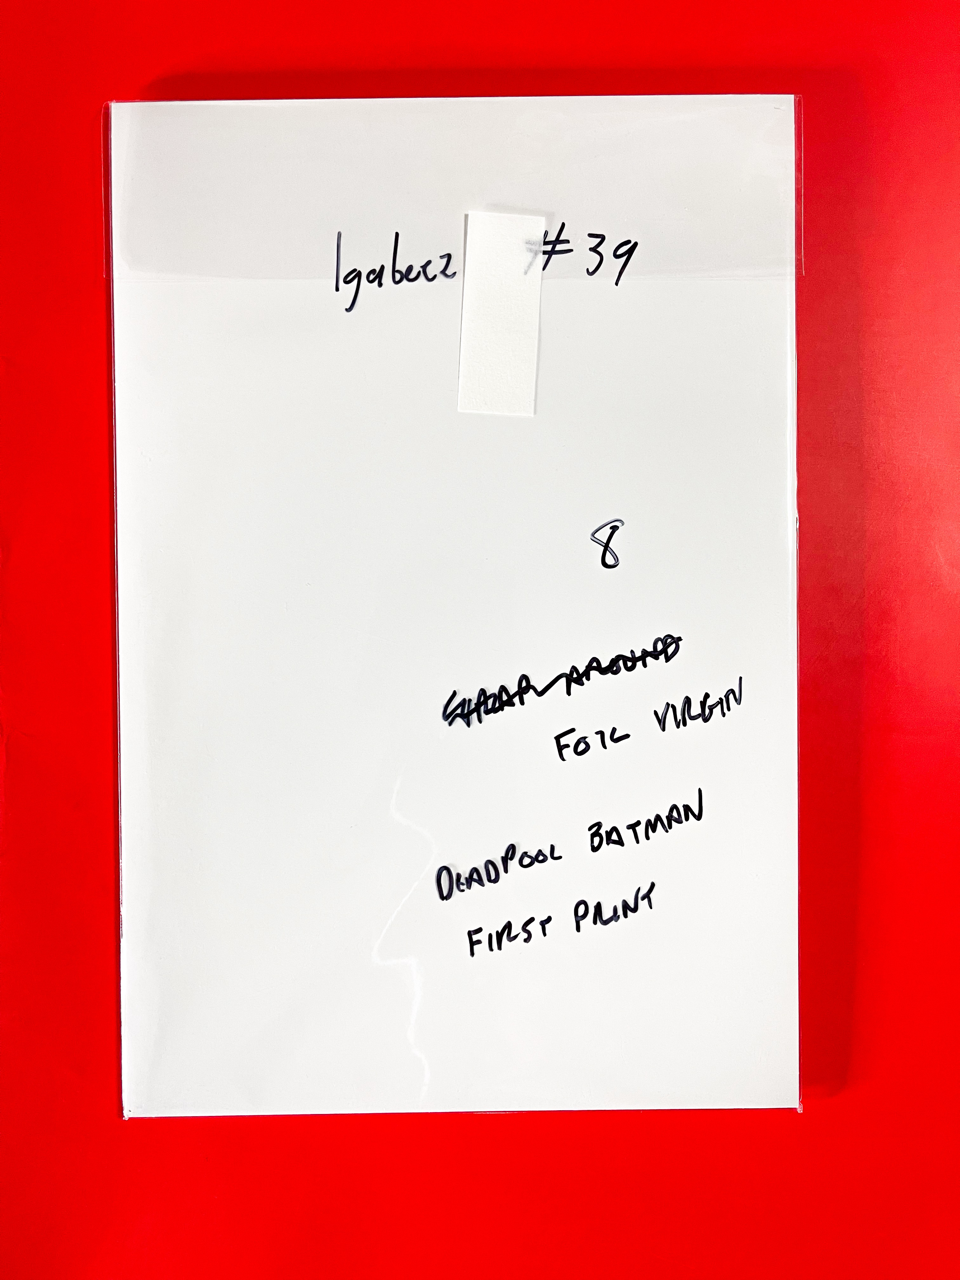 lgabecz #39
8
WRAP AROUND
FOIL VIRGIN
DEADPOOL BATMAN
FIRST PRINT